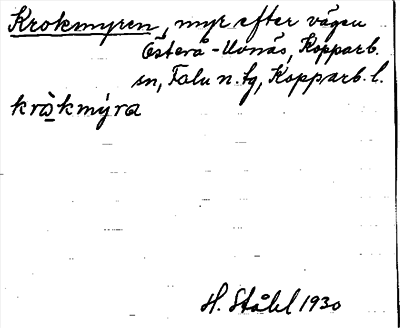 Krokmyren, myr efter vägen
Österå - Uvnäs, Kopparb.
sn, Falu n. tg, Kopparb. l.
krò̱kmýra
H. Ståhl 1930